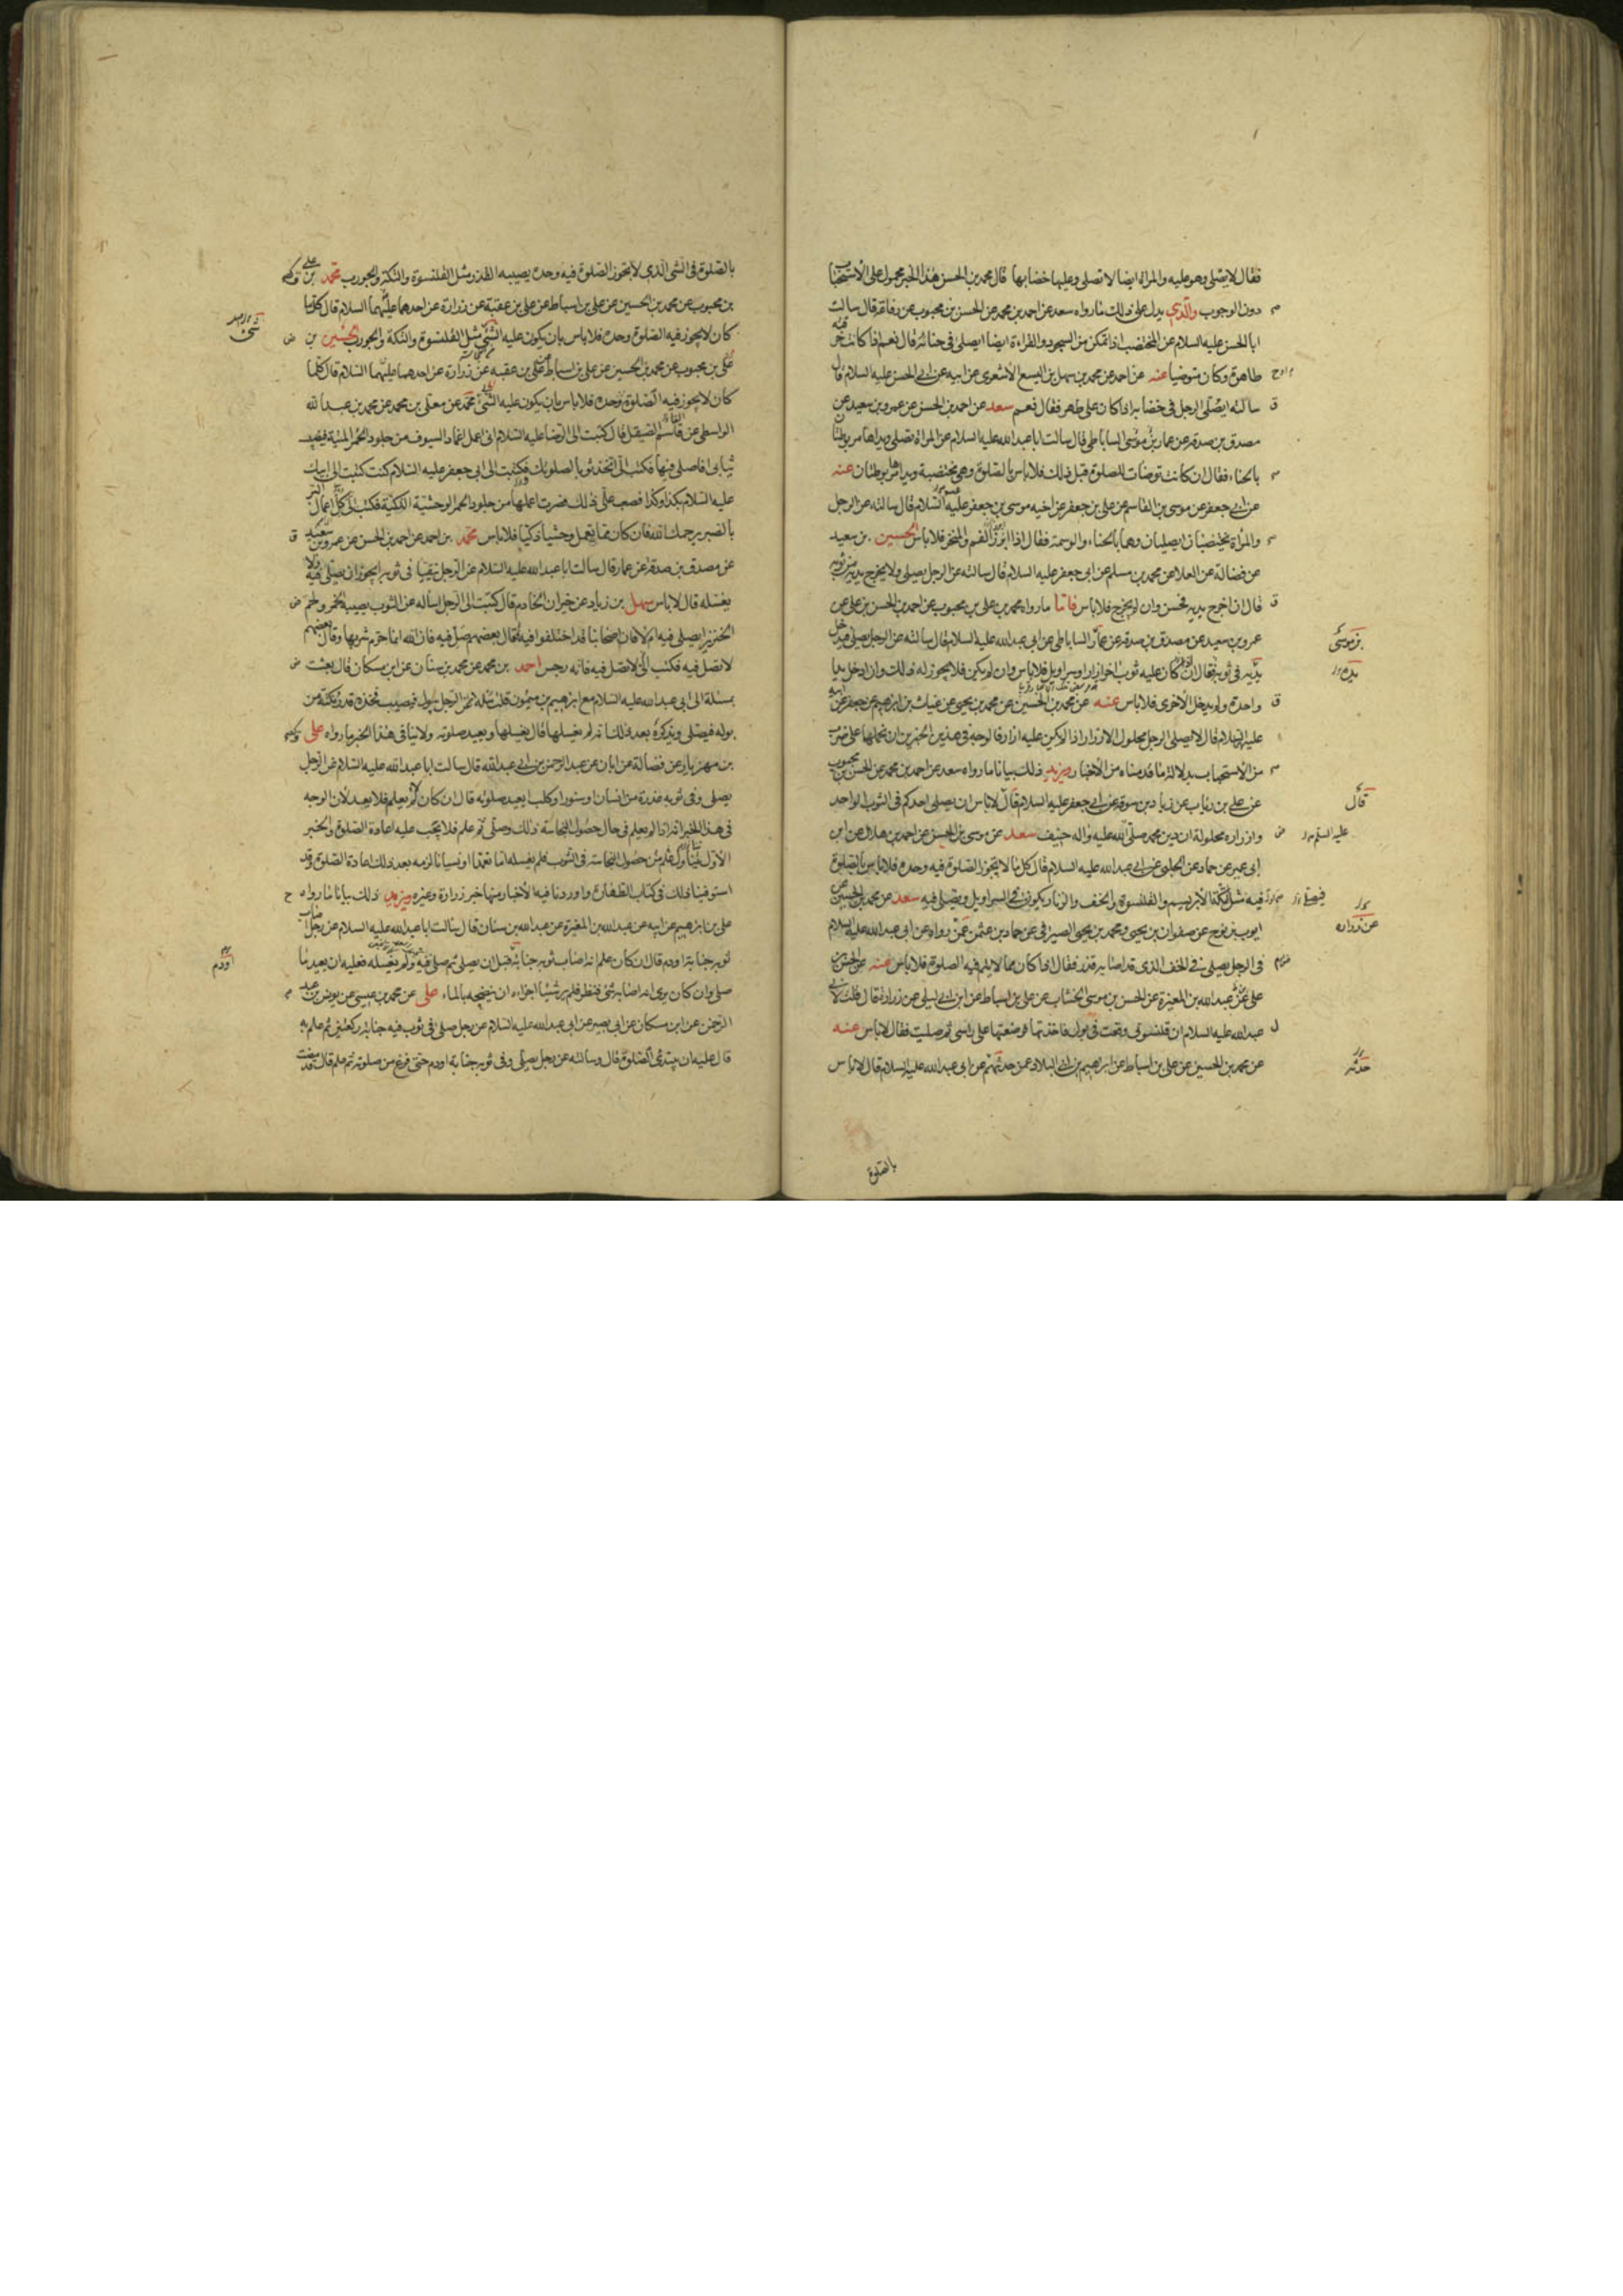 فقال لا يصلي وهو عليه والمراة ايضا لا تصلي وعليها خضابها قال محمد بن الحسن هذا الخبر محمول على الاستحباب
دون الوجوب والذي يدل على ذلك ما رواه سعد عن احمد بن محمد عن الحسن بن محبوب عن رفاعة قال سالت
ابا الحسن عليه السلام عن المختضب اذا تمكن من السجود والقراءة ايضا ايصلي في حنائه قال نعم اذا كانت خرقته
طاهرة وكان متوضيا عنه عن احمد عن محمد بن سهل بن اليسع الاشعري عن ابيه عن ابي الحسن عليه السلام قال
سالته ايصلي الرجل في خضابه اذا كان على طهر فقال نعم سعد عن احمد بن الحسن عن عمرو بن سعيد عن
مصدق بن صدقة عن عمار بن موسى الساباطي قال سالت ابا عبد الله عليه السلام عن المراة تصلي ويداها مربوطتان
بالحناء فقال ان كانت توضات للصلوة قبل ذلك فلا باس بالصلوة وهي مختضبة ويداها مربوطتان عنه
عن ابي جعفر عن موسى بن القاسم عن علي بن جعفر عن اخيه موسى بن جعفر عليه السلام قال سالته عن الرجل
والمراة يختضبان ايصليان وهما بالحناء والوسمة فقال اذا ابرز الفم والمنخر فلا باس الحسين بن سعيد
عن فضالة عن العلا عن محمد بن مسلم عن ابي جعفر عليه السلام قال سالته عن الرجل يصلي ولا يخرج يديه من ثوبه
قال ان اخرج يديه فحسن وان لم يخرج فلا باس فاما ما رواه محمد بن علي بن محبوب عن احمد بن الحسن بن علي عن
عمرو بن سعيد عن مصدق بن صدقة عن عمار الساباطي عن ابي عبد الله عليه السلام قال سالته عن الرجل يصلي فيدخل
يديه في ثوبه فقال ان كان عليه ثوب اخر ازار او سراويل فلا باس وان لم يكن فلا يجوز له ذلك وان ادخل يدا
واحدة ولم يدخل الاخرى فلا باس عنه عن محمد بن الحسين عن محمد بن يحيى عن غياث بن ابراهيم عن جعفر عن ابيه
عليه السلام قال لا يصلي الرجل محلول الازرار اذا لم يكن عليه ازار فالوجه في هذين الخبرين ان نحملهما على ضرب
من الاستحباب بدلالة ما قدمناه من الاخبار ويزيد ذلك بيانا ما رواه سعد عن احمد بن محمد عن الحسن بن محبوب
عن علي بن رئاب عن زياد بن سوقة عن ابي جعفر عليه السلام قال لا باس ان يصلي احدكم في الثوب الواحد
وازراره محلولة ان دين محمد صلى الله عليه واله حنيف سعد عن موسى بن الحسن عن احمد بن هلال عن ابن
ابي عمير عن حماد عن الحلبي عن ابي عبد الله عليه السلام قال كل ما لا يتجوز الصلوة فيه وحده فلا باس بالصلوة
فيه مثل التكة الابريسم والقلنسوة والخف والزنار يكون في السراويل ويصلي فيه سعد عن محمد بن الحسين عن
ايوب بن نوح عن صفوان بن يحيى ومحمد بن يحيى الصيرفي عن حماد بن عثمن عمن رواه عن ابي عبد الله عليه السلام
في الرجل يصلي في الخف الذي قد اصابه قذر فقال اذا كان مما لا يتم فيه الصلوة فلا باس عنه عن الحسن بن
علي عن عبد الله بن المغيرة عن الحسن بن موسى الخشاب عن علي بن اسباط عن ابن ابي ليلى عن زرارة قال قلت لابي
عبد الله عليه السلام ان قلنسوتي وقعت في بول فاخذتها فوضعتها على راسي ثم صليت فقال لا باس عنه
عن محمد بن الحسين عن علي بن اسباط عن ابراهيم بن ابي البلاد عمن حدثهم عن ابي عبد الله عليه السلام قال لا باس
بالصلوة
بن موسى
يده
قال
عليه السلم
عن زرارة
حدثه
بالصلوة في الشي الذي لا تجوز الصلوة فيه وحده يصيبه القذر مثل القلنسوة والتكة والجورب محمد بن علي
بن محبوب عن محمد بن الحسين عن علي بن اسباط عن علي بن عقبة عن زرارة عن احدهما عليهما السلام قال كل ما
كان لا يجوز فيه الصلوة وحده فلا باس بان يكون عليه الشي مثل القلنسوة والتكة والجورب الحسين بن
علي بن محبوب عن محمد بن الحسين عن علي بن اسباط عن علي بن عقبه عن زرارة عن احدهما عليهما السلام قال كلما
كان لا يجوز فيه الصلوة وحده فلا باس بان يكون عليه الشي محمد عن معلى بن محمد عن محمد بن عبد الله
الواسطي عن قاسم الصيقل قال كتبت الى الرضا عليه السلام اني اعمل اغماد السيوف من جلود الحمر الميتة فيصيب
ثيابي افاصلي فيها فكتب الي اتخذ ثوبا لصلوتك فكتبت الى ابي جعفر عليه السلام كنت كتبت الى ابيك
عليه السلام بكذا وكذا فصعب علي ذلك فصرت اعملها من جلود الحمر الوحشية الذكية فكتب الي كل اعمال البر
بالصبر يرحمك الله فان كان ما تعمل وحشيا ذكيا فلا باس محمد بن احمد عن احمد بن الحسن عن عمرو بن سعيد
عن مصدق بن صدقة عن عمار قال سالت ابا عبد الله عليه السلام عن الرجل يتقيا في ثوبه ايجوز ان يصلي فيه ولا
يغسله قال لا باس سهل بن زياد عن خيران الخادم قال كتبت الى الرجل اساله عن الثوب يصيبه الخمر ولحم
الخنزير ايصلي فيه ام لا فان اصحابنا قد اختلفوا فيه فقال بعضهم صل فيه فان الله انما حرم شربها وقال بعضهم
لا تصل فيه فكتب الي لا تصل فيه فانه رجس احمد بن محمد عن محمد بن سنان عن ابن مسكان قال بعثت
بمسئلة الى ابي عبد الله عليه السلام مع ابراهيم بن ميمون قلت سله عن الرجل يبول فيصيب فخذه قدر نكتة من
بوله فيصلي ويذكر بعد ذلك انه لم يغسلها قال يغسلها ويعيد صلوته ولا ينافي هذا الخبر ما رواه علي
بن مهزيار عن فضالة عن ابان عن عبد الرحمن بن ابي عبد الله قال سالت ابا عبد الله عليه السلام عن الرجل
يصلي وفي ثوبه عذرة من انسان او سنور او كلب ايعيد صلوته قال ان كان لم يعلم فلا يعيد لان الوجه
في هذا الخبر انه اذا لم يعلم في حال حصول النجاسة ذلك وصلى ثم علم فلا يجب عليه اعادة الصلوة والخبر
الاول حصول النجاسة في الثوب فلم يغسله اما تعمدا او نسيانا لزمه بعد ذلك اعادة الصلوة وقد
استوفينا ذلك في كتاب الطهارة واوردنا فيه الاخبار منها خبر زرارة وغيره ويزيد ذلك بيانا ما رواه
علي بن ابراهيم عن ابيه عن عبد الله بن المغيرة عن عبد الله بن سنان قال سالت ابا عبد الله عليه السلام عن رجل اصاب
ثوبه جنابة او دم قال ان كان علم انه اصاب ثوبه جنابة قبل ان يصلي ثم صلى فيه ولم يغسله فعليه ان يعيد ما
صلى وان كان يرى انه اصابه شي فنظر فلم ير شيئا اجزاه ان ينضحه بالماء علي عن محمد بن عيسى عن يونس بن عبد
الرحمن عن ابن مسكان عن ابي بصير عن ابي عبد الله عليه السلام عن رجل صلى في ثوب فيه جنابة ركعتين ثم علم به
قال عليه ان يبتدئ الصلوة قال وسالته عن رجل يصلي وفي ثوبه جنابة او دم حتى فرغ من صلوته ثم علم قال قد مضت
او دم